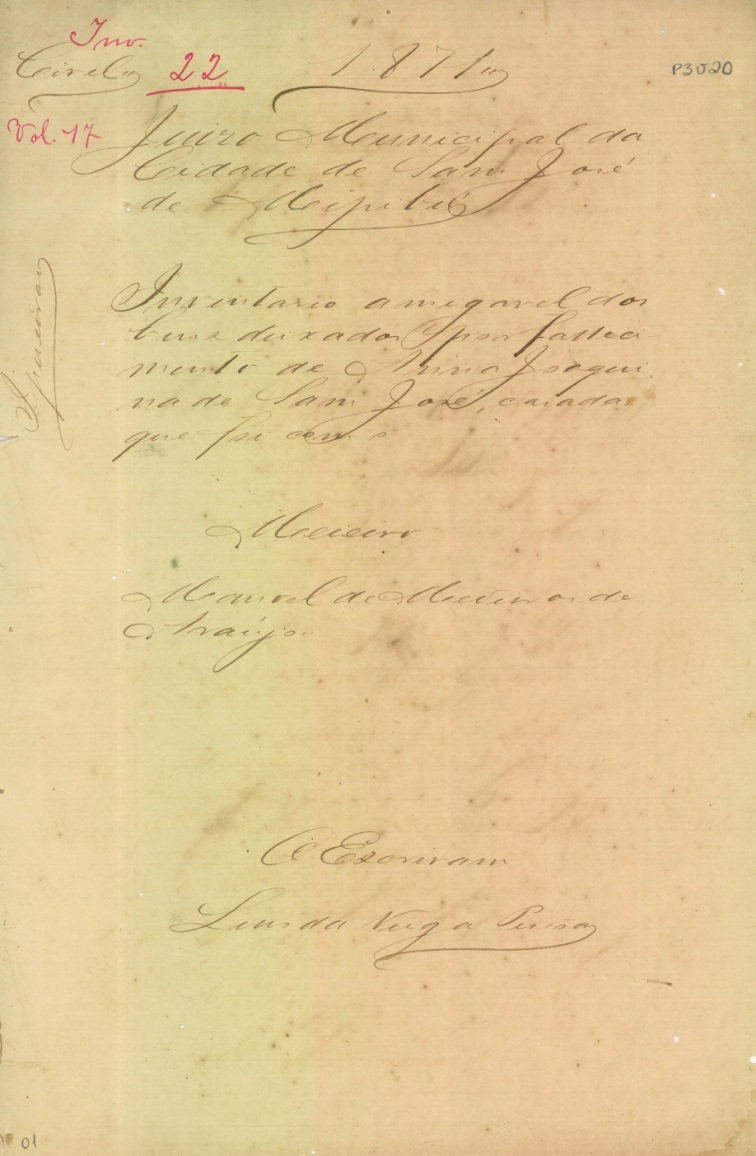 Inv.
Civel 22 1871
P3J20
Vol. 17
Juizo Municipal da
Cidade de Sam José
de Mipibú
Inventario amigavel dos
bens deixados por falleci
mento de Anna Joaqui
na de Sam José, casada
que foi com
Meieiro
Manoel de Medeiros de
Araújo
O Escrivam
Luis da Veiga
01